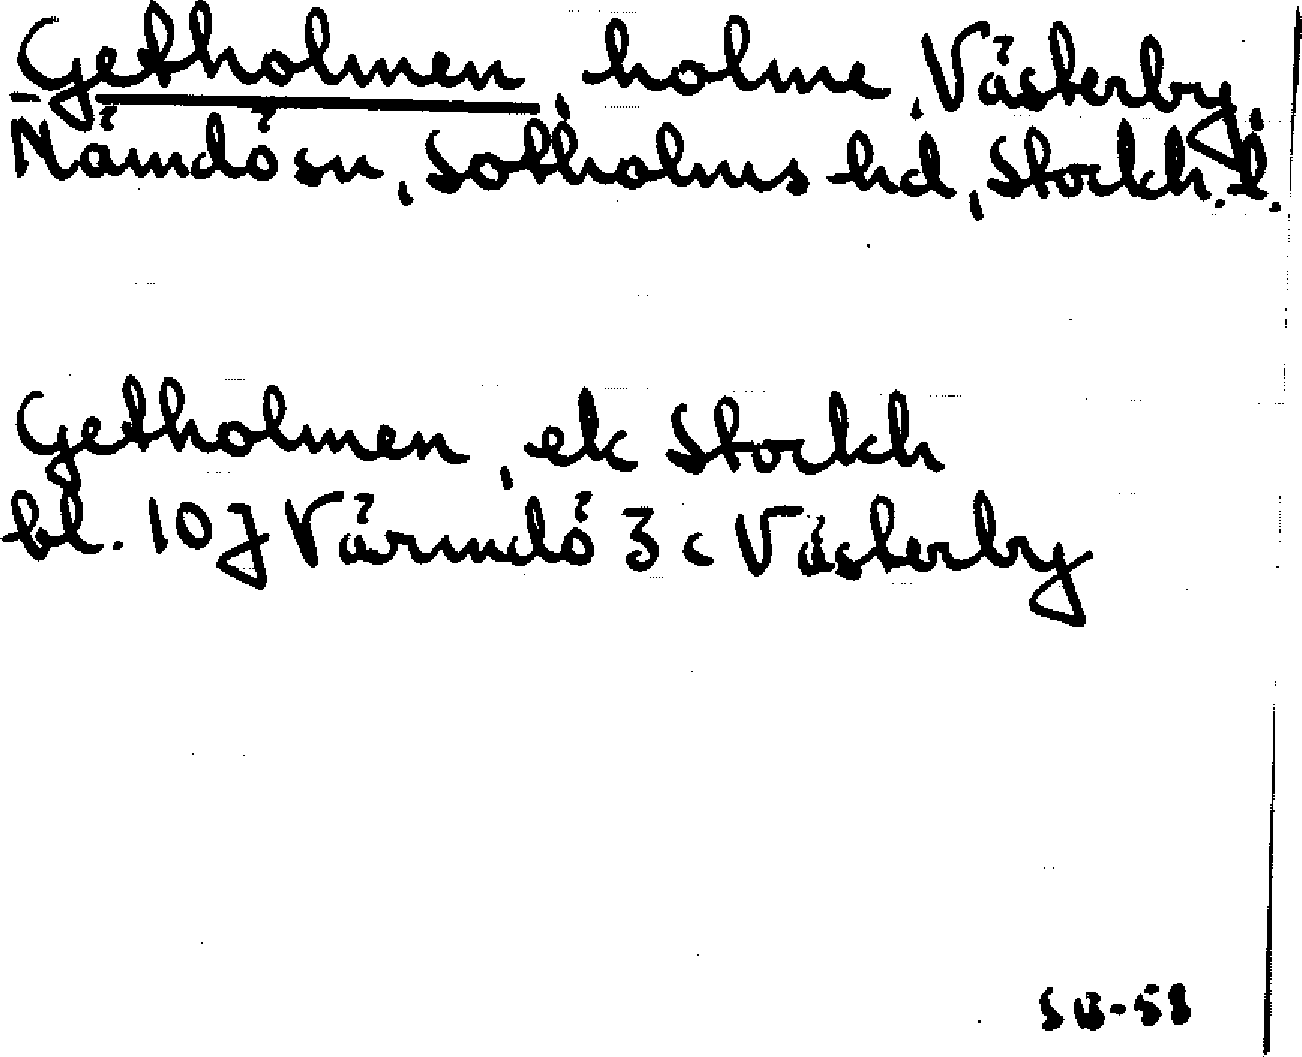 Getholmen, holme, Västerby,
Nämdö sn, Sotholms hd, Stockh. l.
Getholmen, ek Stockh
bl. 10J Värmdö 3c Västerby
SB-58